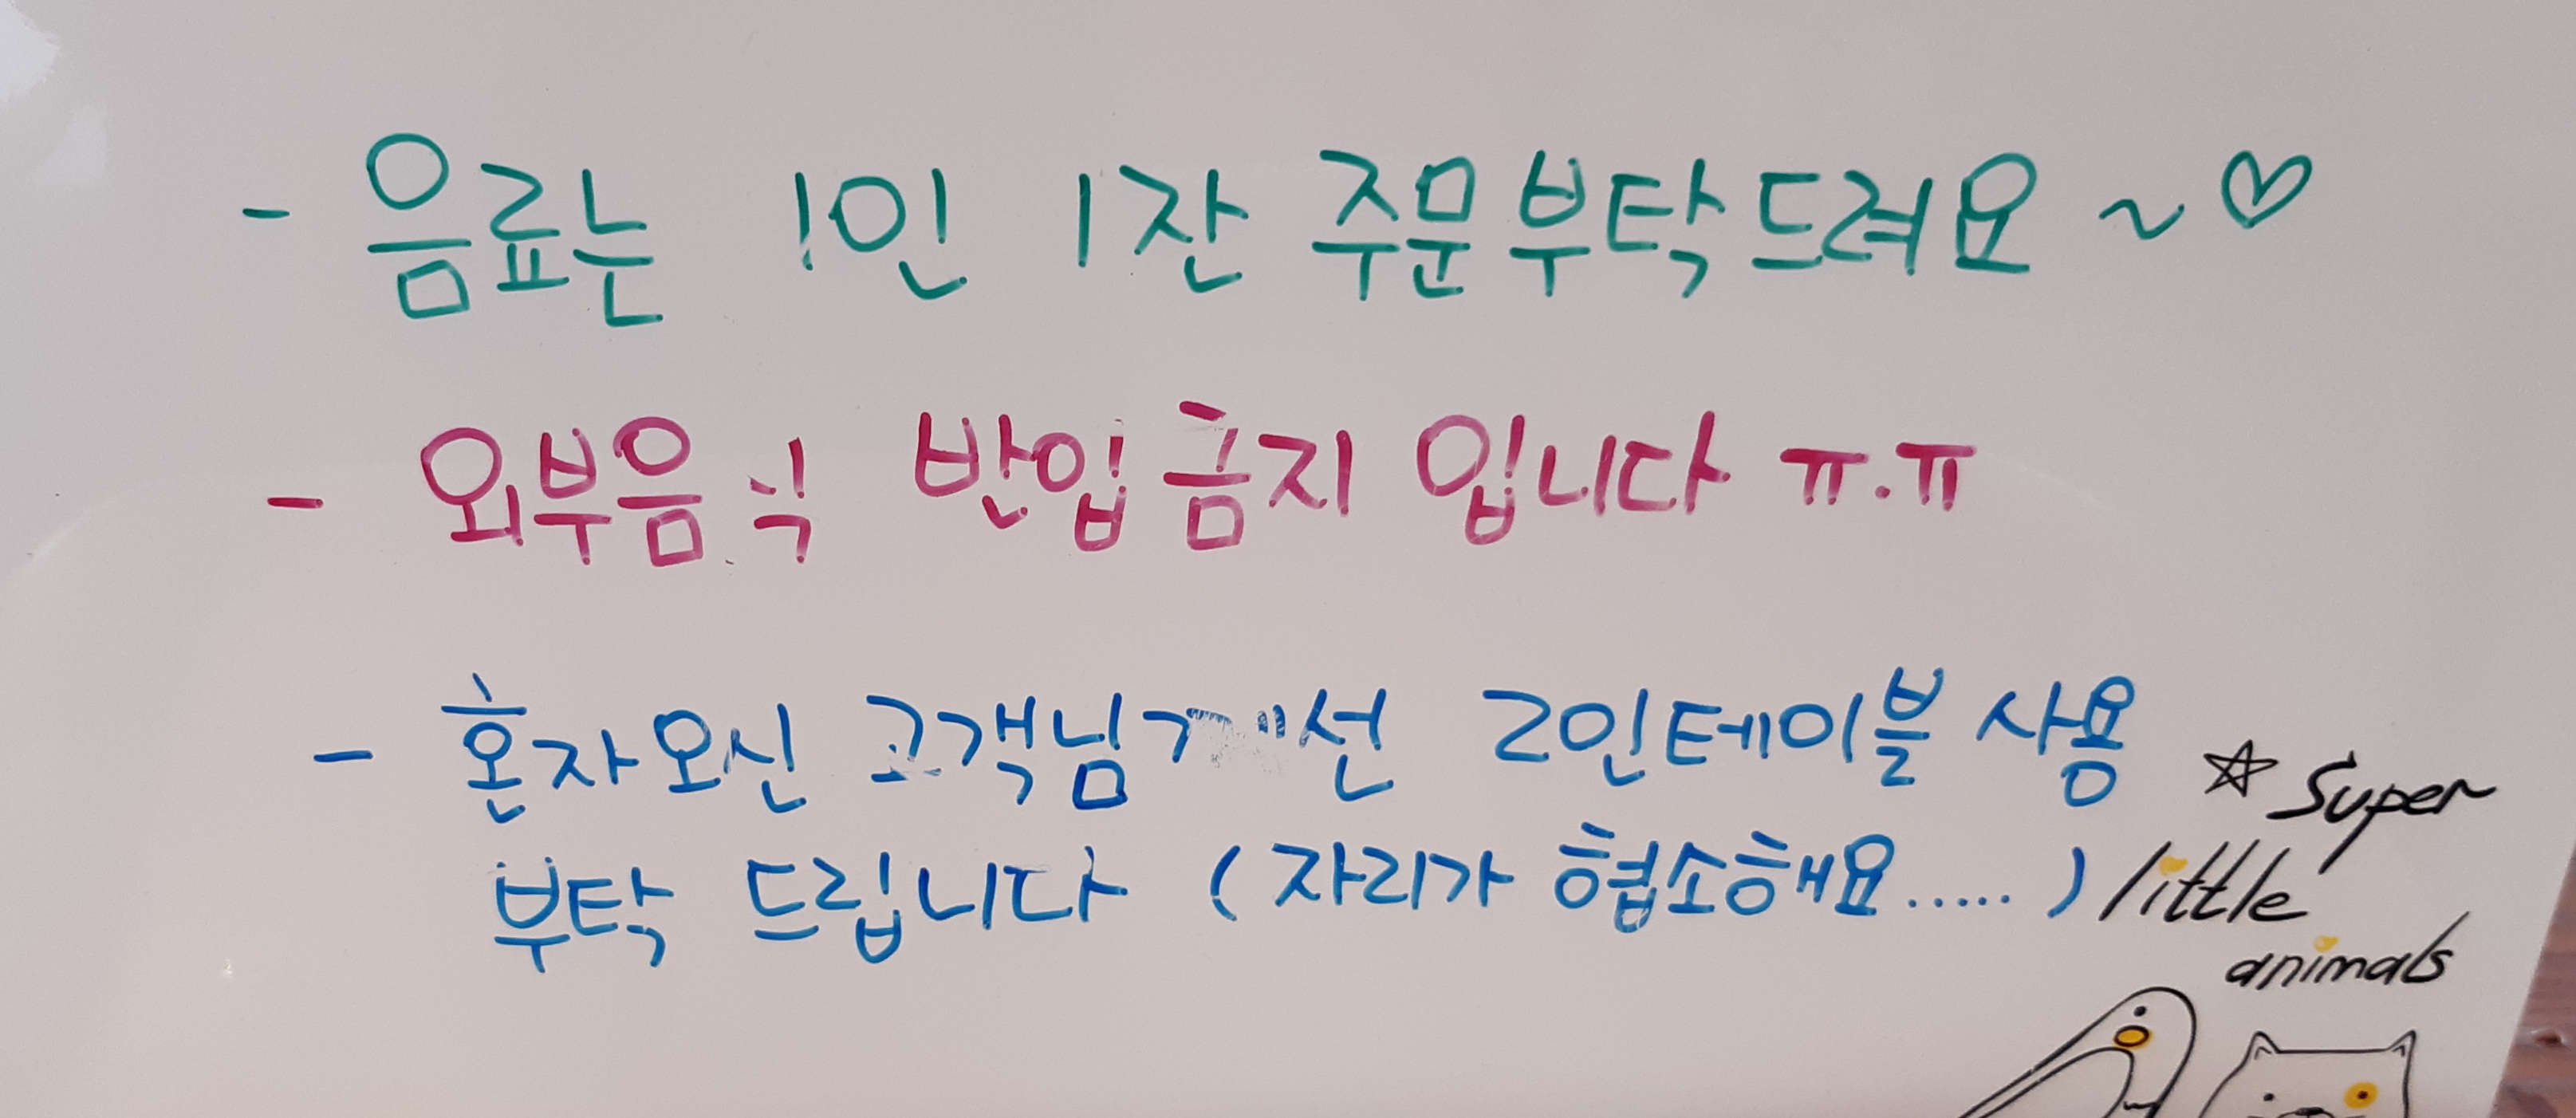 - 음료는 1인 1잔 주문부탁드려요 ~♡
- 외부음식 반입금지 입니다 ㅠ.ㅠ
- 혼자오신 고객님께선 2인테이블 사용
부탁 드립니다 (자리가 협소해요.....)
☆ Super
little
animals